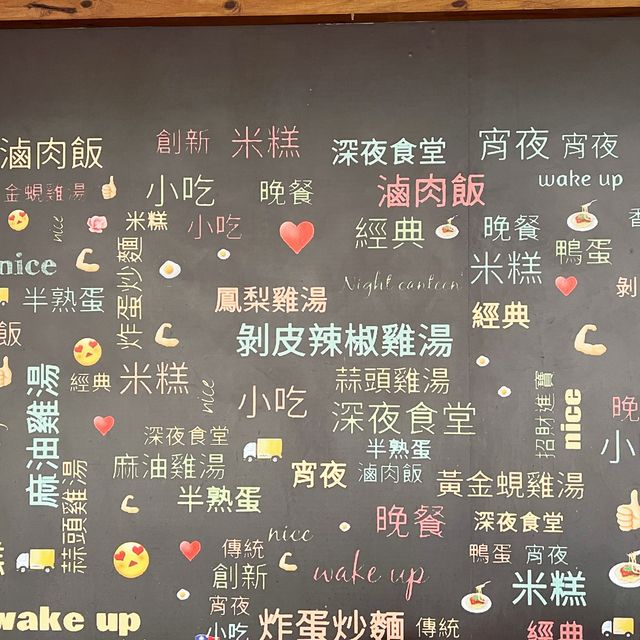 滷肉飯
創新
米糕
深夜食堂
宵夜
宵夜
金蜆雞湯
小吃
晚餐
滷肉飯
wake up
nice
米糕
小吃
經典
晚餐
鴨蛋
nice
炸蛋炒麵
半熟蛋
鳳梨雞湯
Night canteen
米糕
剝
經典
飯
剝皮辣椒雞湯
麻油雞湯
經典
米糕
nice
蒜頭雞湯
小吃
深夜食堂
招財進寶
nice
晚
小
深夜食堂
半熟蛋
麻油雞湯
蒜頭雞湯
宵夜
滷肉飯
黃金蜆雞湯
半熟蛋
晚餐
深夜食堂
nice
傳統
鴨蛋
宵夜
創新
wake up
米糕
宵夜
wake up
小吃
炸蛋炒麵
傳統
經典